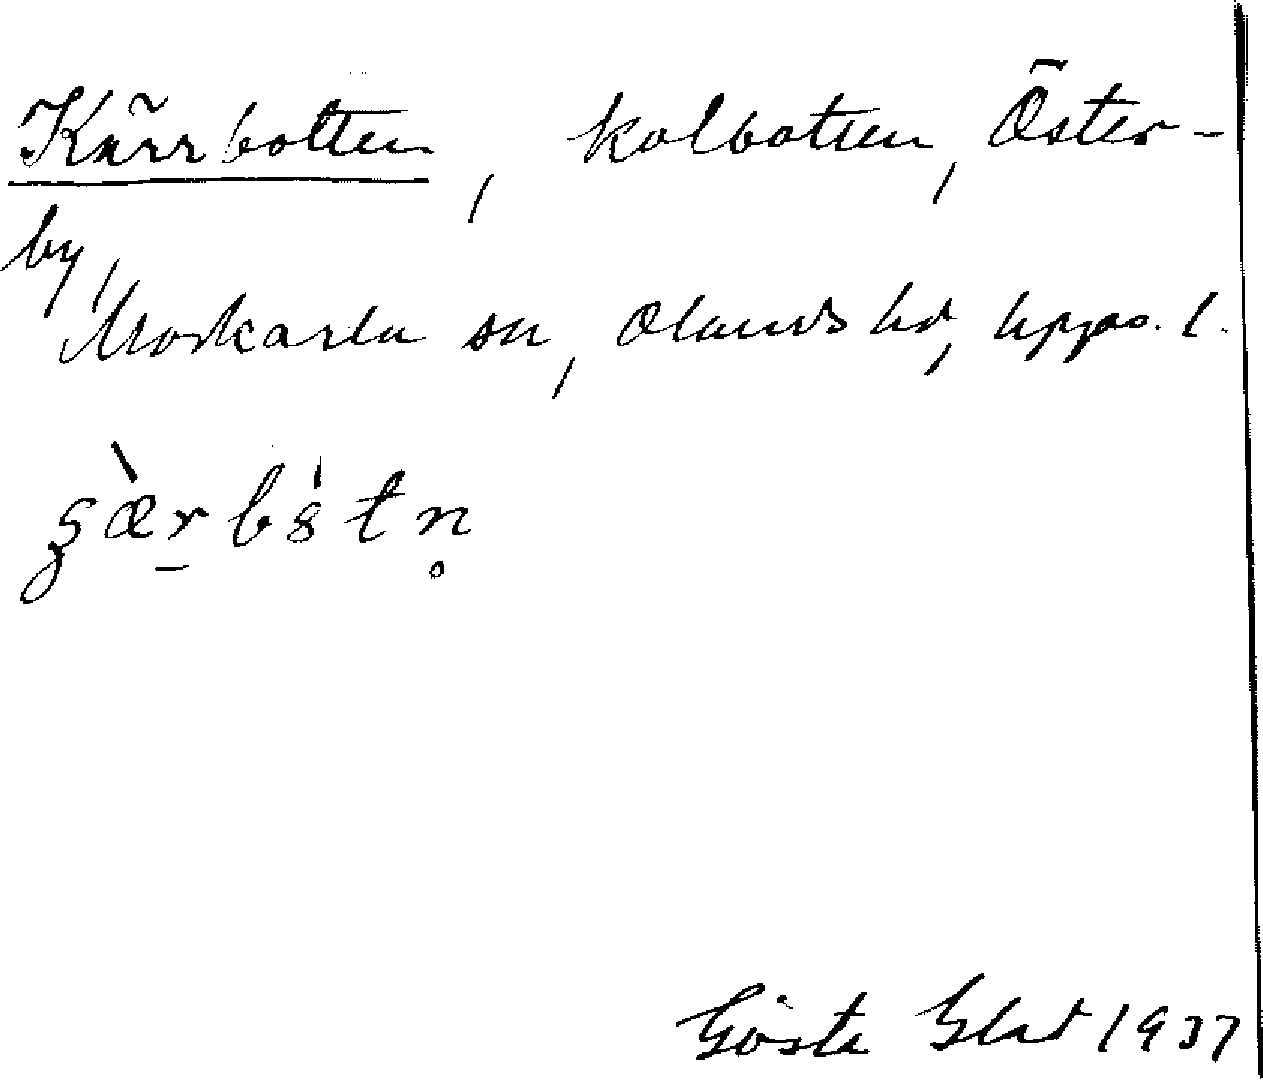 Kärrbotten, kolbotten, Öster-
by,
Morkarla sn, Olands hd, Upps. l.
Gösta Glad 1937